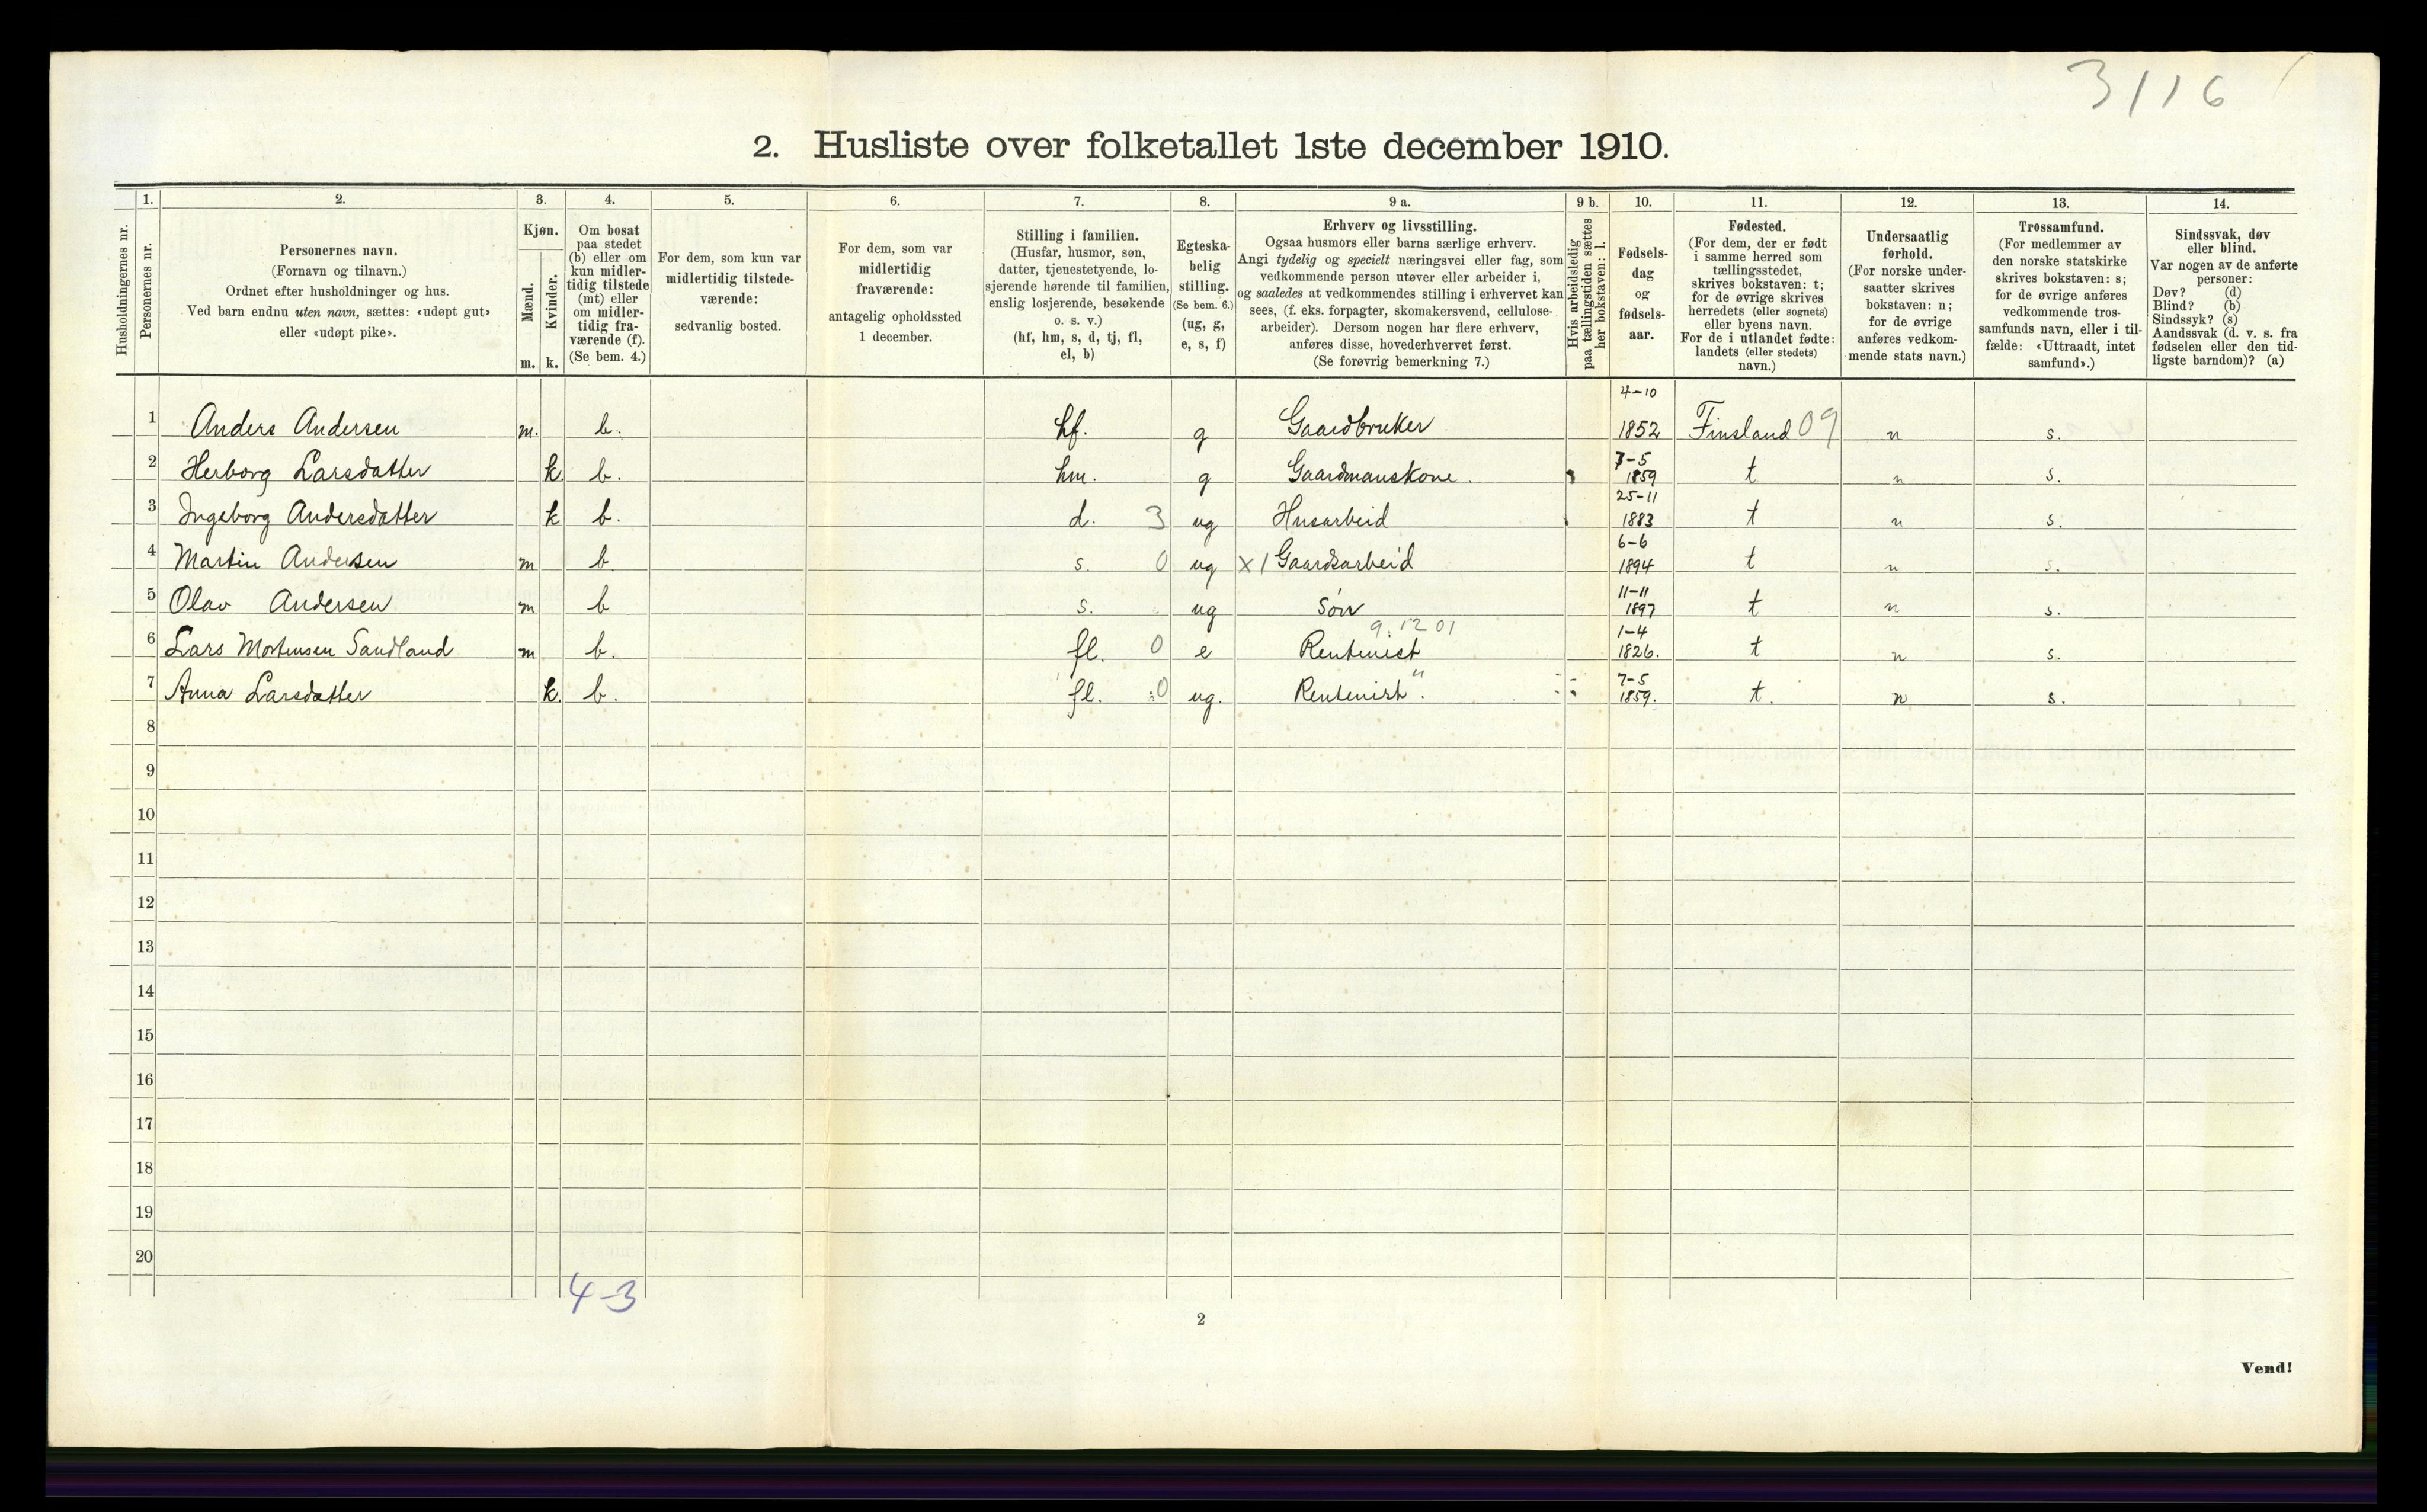 3/16
2. Husliste over folketallet 1ste december 1910.
Husholdningernes nr.
1. Personernes nr.
2. Personernes navn.
(Fornavn og tilnavn.)
Ordnet efter husholdninger og hus.
Ved barn endnu uten navn, sættes: «udøpt gut»
eller «udøpt pike».
3. Kjøn.
Mænd. m.
Kvinder. k.
4. Om bosat
paa stedet
(b) eller om
kun midler-
tidig tilstede
(mt) eller
om midler-
tidig fra-
værende (f).
(Se bem. 4.)
5. For dem, som kun var
midlertidig tilstede-
værende:
sedvanlig bosted.
6. For dem, som var
midlertidig
fraværende:
antagelig opholdssted
1 december.
7. Stilling i familien.
(Husfar, husmor, søn,
datter, tjenestetyende, lo-
sjerende hørende til familien,
enslig losjerende, besøkende
o. s. v.)
(hf, hm, s, d, tj, fl,
el, b)
8. Egteska-
belig
stilling.
(Se bem. 6.)
(ug, g,
e, s, f)
9 a. Erhverv og livsstilling.
Ogsaa husmors eller barns særlige erhverv.
Angi tydelig og specielt næringsvei eller fag, som
vedkommende person utøver eller arbeider i,
og saaledes at vedkommendes stilling i erhvervet kan
sees, (f. eks. forpagter, skomakersvend, cellulose-
arbeider). Dersom nogen har flere erhverv,
anføres disse, hovederhvervet først.
(Se forøvrig bemerkning 7.)
9 b. Hvis arbeidsledig
paa tællingstiden sættes
her bokstaven: l.
10. Fødsels-
dag
og
fødsels-
aar.
11. Fødested.
(For dem, der er født
i samme herred som
tællingsstedet,
skrives bokstaven: t;
for de øvrige skrives
herredets (eller sognets)
eller byens navn.
For de i utlandet fødte:
landets (eller stedets)
navn.)
12. Undersaatlig
forhold.
(For norske under-
saatter skrives
bokstaven: n;
for de øvrige
anføres vedkom-
mende stats navn.)
13. Trossamfund.
(For medlemmer av
den norske statskirke
skrives bokstaven: s;
for de øvrige anføres
vedkommende tros-
samfunds navn, eller i til-
fælde: «Uttraadt, intet
samfund».)
14. Sindssvak, døv
eller blind.
Var nogen av de anførte
personer:
Døv? (d)
Blind? (b)
Sindssyk? (s)
Aandssvak (d. v. s. fra
fødselen eller den tid-
ligste barndom)? (a)
1 Anders Andersen m. b. hf. g Gaardbruker 4-10 1852 Finsland 09 n s.
2 Herborg Larsdatter k. b. hm. g Gaardmanskone. 7-5 1859 t n s.
3 Ingeborg Andersdatter k b. d. 3 ug Husarbeid 25-11 1883 t n s.
4 Martin Andersen m b. s. 0 ug X 1 Gaardsarbeid 6-6 1894 t n s.
5 Olav Andersen m b s. ug Søn 11-11 1897 t n s.
9.12 01
6 Lars Mortensen Sandland m b. fl. 0 e Rentenist 1-4 1826. t n s.
7 Anna Larsdatter k. b. fl. 0 ug. Rentenist ". 7-5 1859. t. n s.
8
9
10
11
12
13
14
15
16
17
18
19
20
4-3
2
Vend!